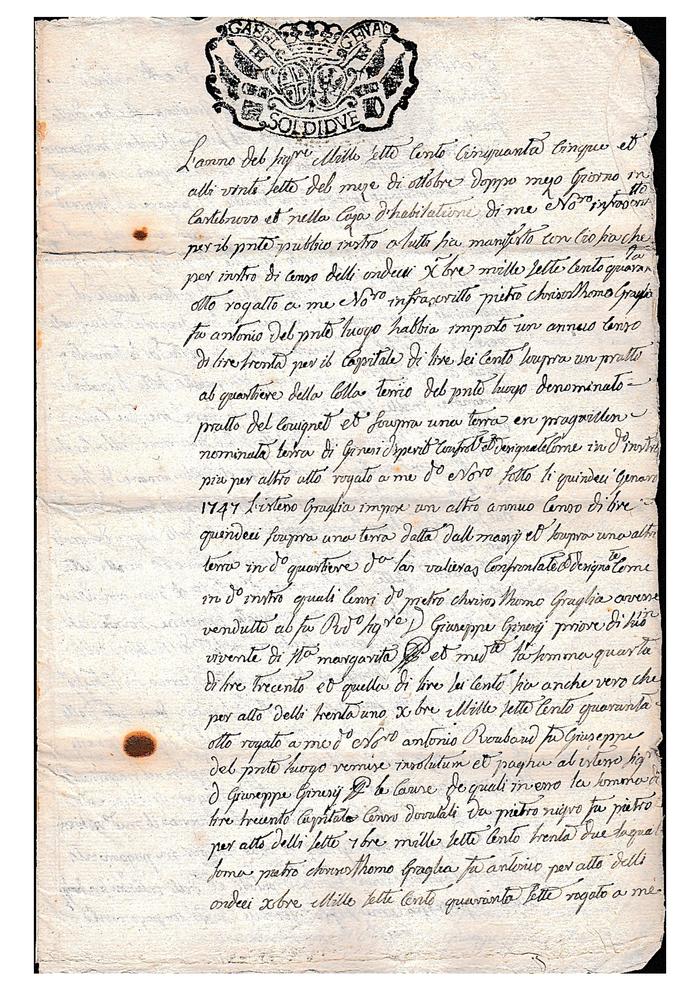 GABEL GENAO
SOLDI DVE
L'anno del sig.re Mille sette Cento Cinquanta Cinque et
alli vinte sette del meze di ottobre doppo mezo Giorno in
Castelnovo et nella Caza d'habitatione di me No.ro infrascrit.to
per il pnte publico instro a tutti sia manifesto con Cio sia che
per instro di censo delli ondeci Xbre mille sette Cento quaran.ta
otto rogatto a me No.ro infrascritto pietro chrisosthomo Graglia
fu antonio del pnte luogo habbia imposto un annuo Censo
di lire trenta per il Capitale di lire sei Cento soupra un pratto
al quartiere della Colla terrio del pnte luogo denominato
pratto del Couignet et soupra una terra en
nominata terra di Ginesi Come in d.o instro
piu per altro atto rogato a me d.o No.ro sotto li quindeci Genaro
1747 l'istesso Graglia impose un altro annuo Censo di lire
quendeci soupra una terra datta dall massij et soupra una altra
terra in d.o quartiere d.a las valieras Confrontate et designa.te Come
in d.o instro quali Censi d.o pietro chrisosthomo Graglia avesse
vendutte al fu R.do sig.re D Giuseppe Ginesij priore di suo
vivente di S.ta margarita et med.te la somma quarta
di lire trecento et quella di lire sei Cento sia anche vero che
per atto delli trenta uno Xbre Mille sette Cento quaranta
otto rogato a me d.o No.ro antonio Roubaud fu Giuseppe
del pnte luogo remise insolutum et pagha al istesso sig.r
D Giuseppe Ginesij le Cause de quali in esso la somma di
lire trecento Capitale Censo dovutali da pietro nigro fu pietro
per atto delli sette 7bre mille sette Cento trenta due laqual
soma pietro chrisosthomo Graglia fu antonio per atto delli
ondeci Xbre Mille sette Cento quaranta sette rogato a me